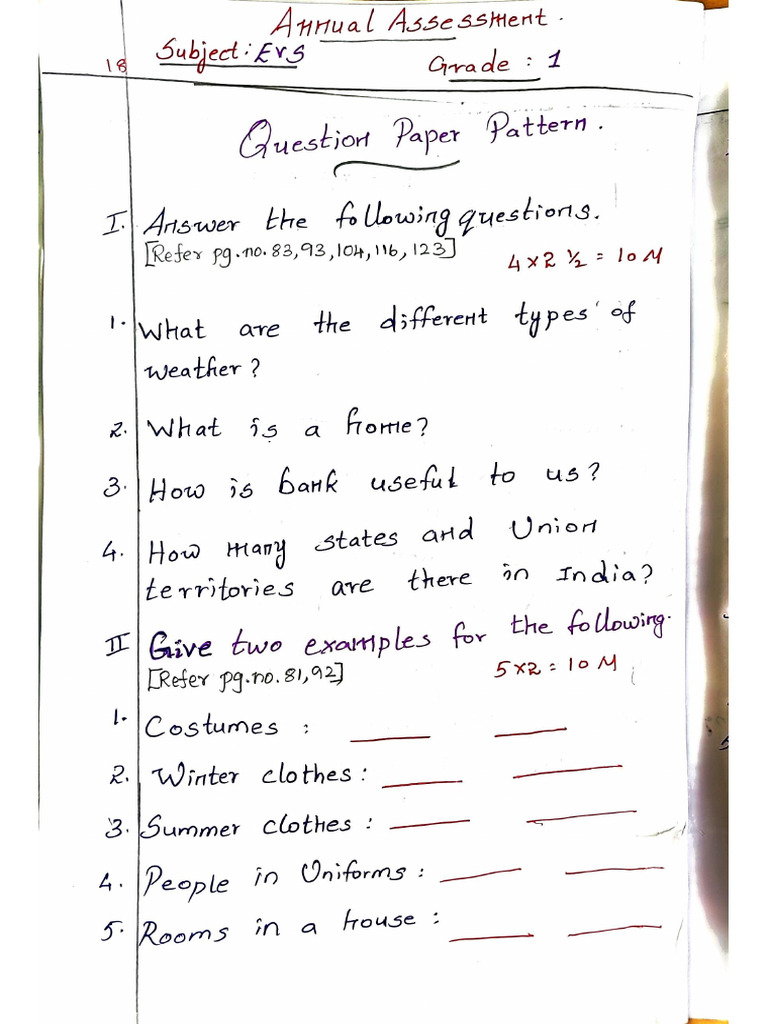 Annual Assessment.
18 Subject: EVS Grade : 1
Question Paper Pattern.
I. Answer the following questions.
[Refer pg.no.83,93,104,116,123] 4 x 2 ½ = 10 M
1. What are the different types of
weather?
2. What is a home?
3. How is bank useful to us?
4. How many states and Union
territories are there in India?
II Give two examples for the following.
[Refer pg.no.81,92] 5x2 = 10 M
1. Costumes :
2. Winter clothes :
3. Summer clothes :
4. People in Uniforms :
5. Rooms in a house :